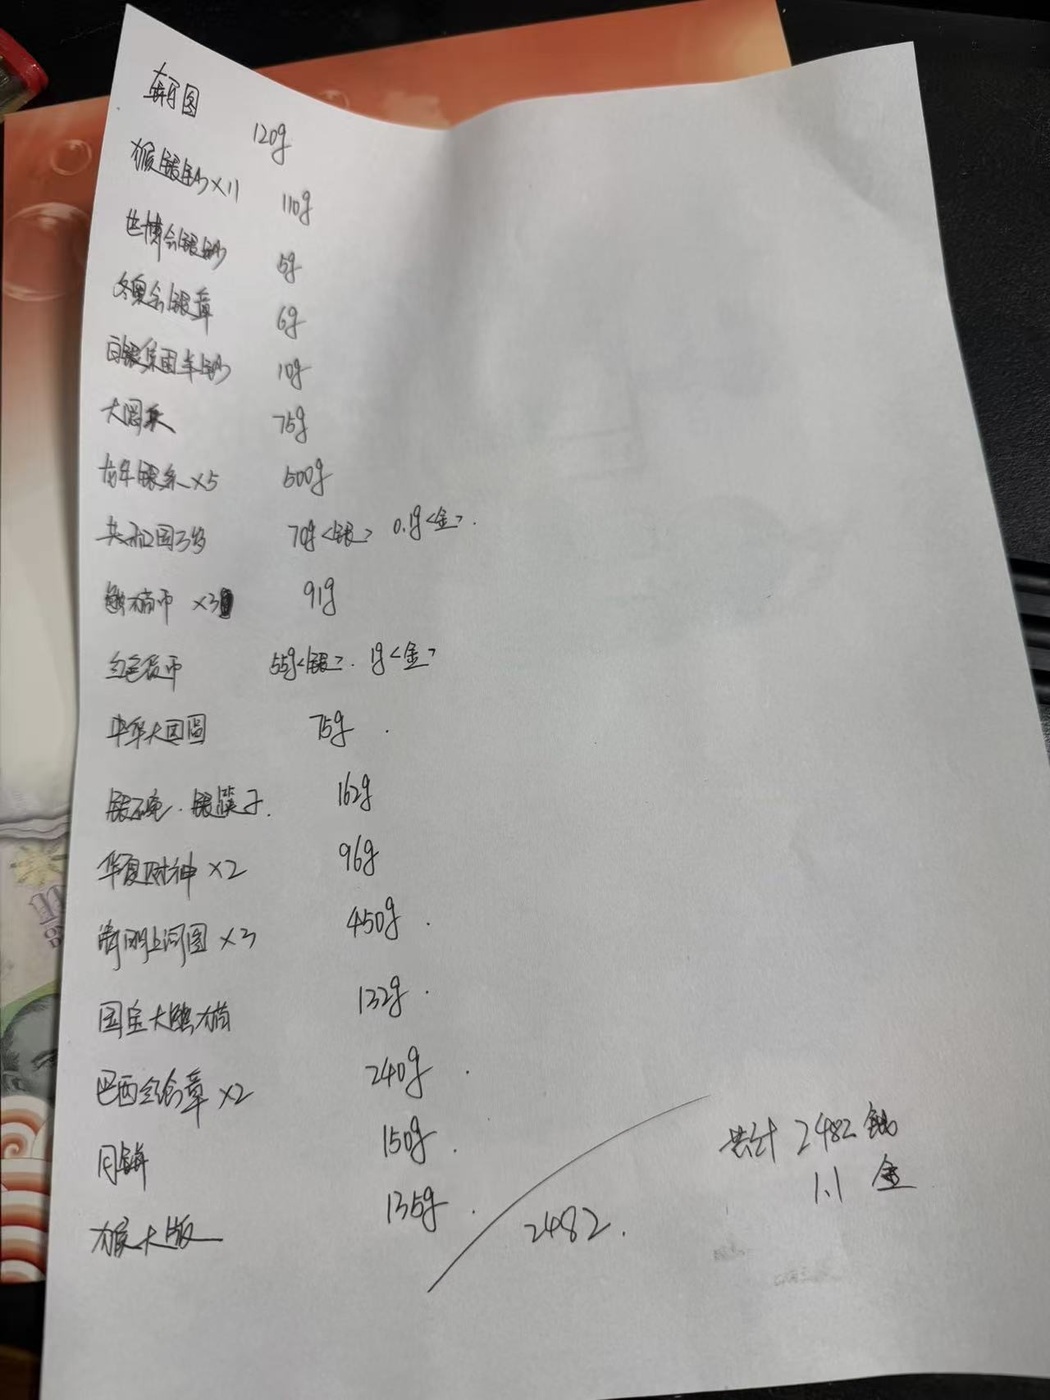 骑图 120g
猴银钞×11 110g
世博会银钞 5g
冬奥会银章 6g
白银集团羊钞 10g
大圆 75g
银条×5 500g
共和国 70g<银> 0.1g<金>.
熊猫币 ×3 91g
货币 55g<银>. 1g<金>
中华大团圆 75g.
银碗.银筷子. 162g
华夏财神×2 96g
清明上河图×3 450g.
国宝大熊猫 132g.
巴西会章×2 240g.
月饼 150g.
猴大版 135g.
2482.
共计 2482 银
1.1 金